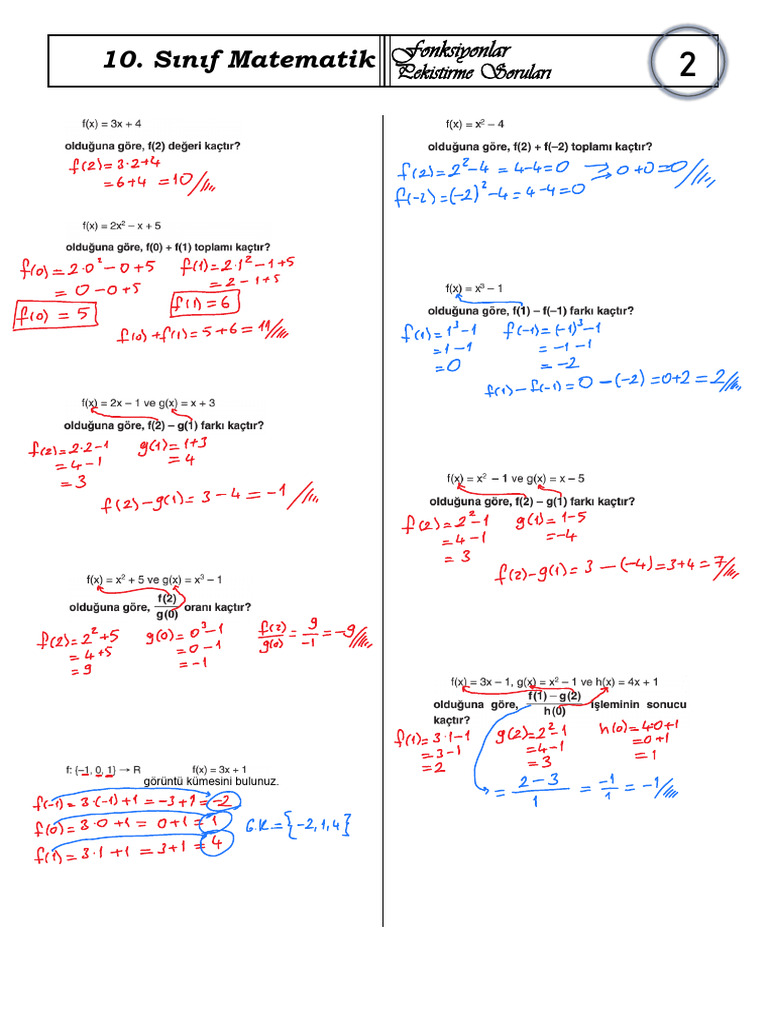 10. Sınıf Matematik
Fonksiyonlar
Pekistirme Soruları
2
f(x) = 3x + 4
olduğuna göre, f(2) değeri kaçtır?
f(2) = 3·2+4
= 6+4 = 10
f(x) = 2x² – x + 5
olduğuna göre, f(0) + f(1) toplamı kaçtır?
f(0) = 2·0² – 0 + 5
= 0 – 0 + 5
f(0) = 5
f(1) = 2·1² – 1 + 5
= 2 – 1 + 5
f(1) = 6
f(0) + f(1) = 5 + 6 = 11
f(x) = 2x – 1 ve g(x) = x + 3
olduğuna göre, f(2) – g(1) farkı kaçtır?
f(2) = 2·2 – 1
= 4 – 1
= 3
g(1) = 1+3
= 4
f(2) – g(1) = 3 – 4 = –1
f(x) = x² + 5 ve g(x) = x³ – 1
olduğuna göre, f(2)/g(0) oranı kaçtır?
f(2) = 2² + 5
= 4 + 5
= 9
g(0) = 0³ – 1
= 0 – 1
= –1
f(2)/g(0) = 9/–1 = –9
f: {–1, 0, 1} → R f(x) = 3x + 1
görüntü kümesini bulunuz.
f(–1) = 3·(–1) + 1 = –3 + 1 = –2
f(0) = 3·0 + 1 = 0 + 1 = 1
f(1) = 3·1 + 1 = 3 + 1 = 4
G.K = {–2, 1, 4}
f(x) = x² – 4
olduğuna göre, f(2) + f(–2) toplamı kaçtır?
f(2) = 2² – 4 = 4 – 4 = 0 → 0 + 0 = 0
f(–2) = (–2)² – 4 = 4 – 4 = 0
f(x) = x³ – 1
olduğuna göre, f(1) – f(–1) farkı kaçtır?
f(1) = 1³ – 1
= 1 – 1
= 0
f(–1) = (–1)³ – 1
= –1 – 1
= –2
f(1) – f(–1) = 0 – (–2) = 0 + 2 = 2
f(x) = x² – 1 ve g(x) = x – 5
olduğuna göre, f(2) – g(1) farkı kaçtır?
f(2) = 2² – 1
= 4 – 1
= 3
g(1) = 1 – 5
= –4
f(2) – g(1) = 3 – (–4) = 3 + 4 = 7
f(x) = 3x – 1, g(x) = x² – 1 ve h(x) = 4x + 1
olduğuna göre, f(1) – g(2)/h(0) işleminin sonucu
kaçtır?
f(1) = 3·1 – 1
= 3 – 1
= 2
g(2) = 2² – 1
= 4 – 1
= 3
h(0) = 4·0 + 1
= 0 + 1
= 1
= 2 – 3/1 = –1/1 = –1